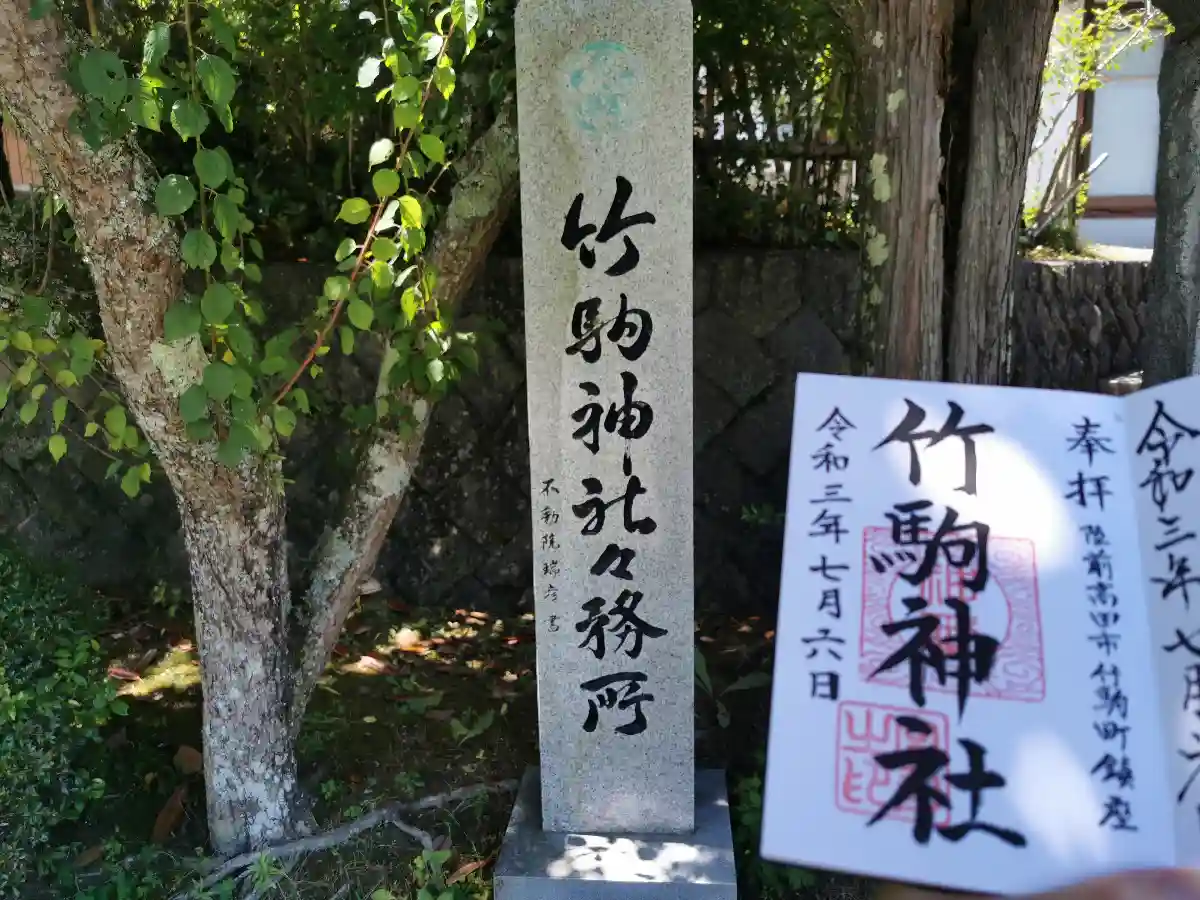 竹駒神社々務所
不動院瑞彦書
奉拝 陸前高田市竹駒町鎮座
竹駒神社
令和三年七月六日
令和三年七月六